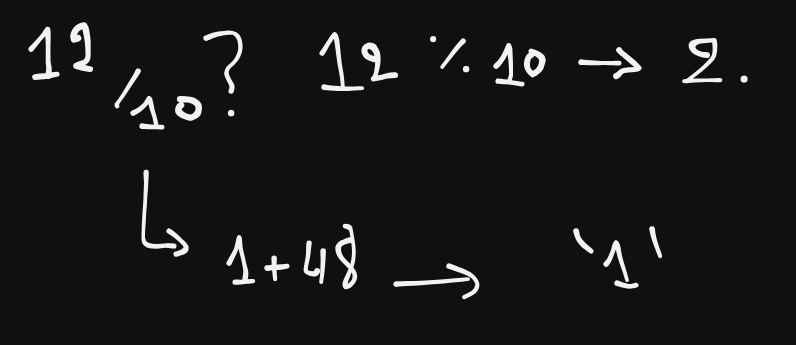 12/10? 12 % 10 → 2.
↳ 1+48 → '1'